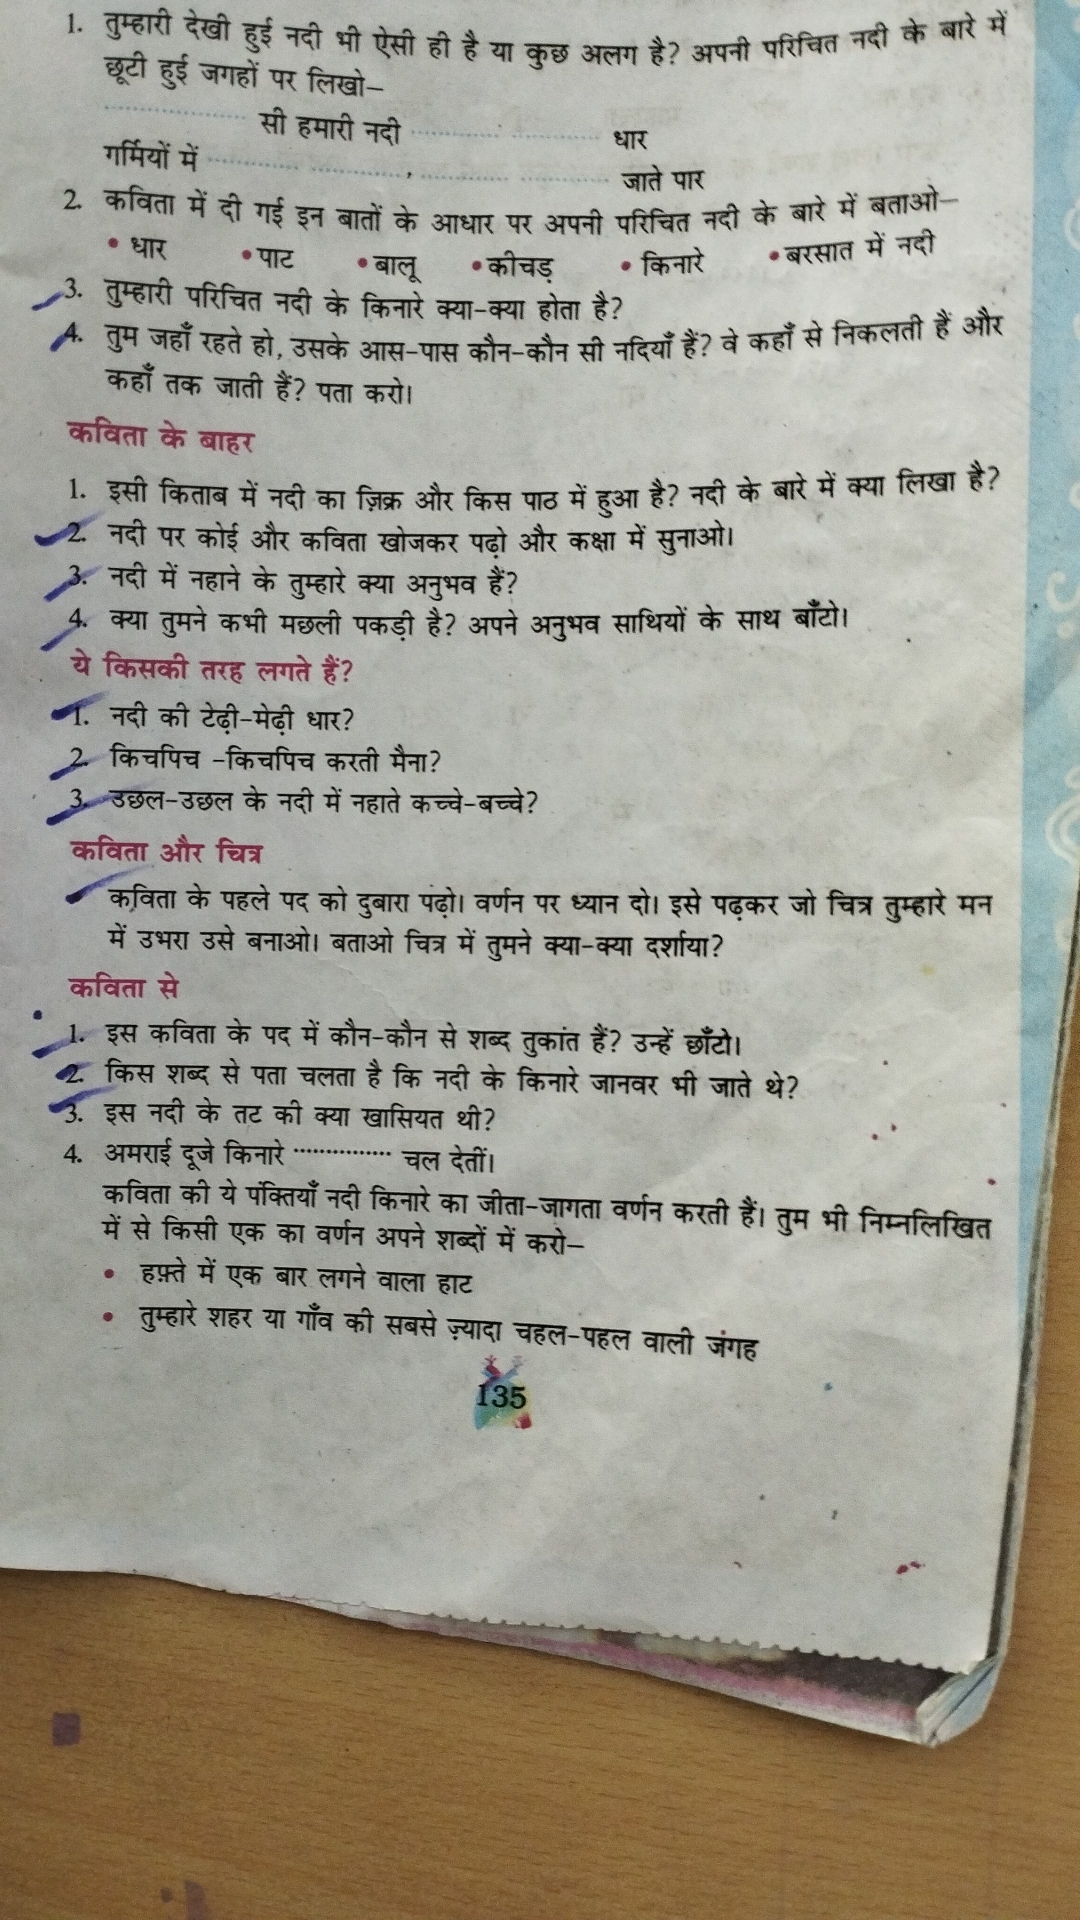 1. तुम्हारी देखी हुई नदी भी ऐसी ही है या कुछ अलग है? अपनी परिचित नदी के बारे में
छूटी हुई जगहों पर लिखो–
.................... सी हमारी नदी .................... .................... धार
गर्मियों में .................... ...................., .................... .................... जाते पार
2. कविता में दी गई इन बातों के आधार पर अपनी परिचित नदी के बारे में बताओ–
• धार • पाट • बालू • कीचड़ • किनारे • बरसात में नदी
3. तुम्हारी परिचित नदी के किनारे क्या-क्या होता है?
4. तुम जहाँ रहते हो, उसके आस-पास कौन-कौन सी नदियाँ हैं? वे कहाँ से निकलती हैं और
कहाँ तक जाती हैं? पता करो।
कविता के बाहर
1. इसी किताब में नदी का ज़िक्र और किस पाठ में हुआ है? नदी के बारे में क्या लिखा है?
2. नदी पर कोई और कविता खोजकर पढ़ो और कक्षा में सुनाओ।
3. नदी में नहाने के तुम्हारे क्या अनुभव हैं?
4. क्या तुमने कभी मछली पकड़ी है? अपने अनुभव साथियों के साथ बाँटो।
ये किसकी तरह लगते हैं?
1. नदी की टेढ़ी-मेढ़ी धार?
2. किचपिच -किचपिच करती मैना?
3. उछल-उछल के नदी में नहाते कच्चे-बच्चे?
कविता और चित्र
कविता के पहले पद को दुबारा पढ़ो। वर्णन पर ध्यान दो। इसे पढ़कर जो चित्र तुम्हारे मन
में उभरा उसे बनाओ। बताओ चित्र में तुमने क्या-क्या दर्शाया?
कविता से
1. इस कविता के पद में कौन-कौन से शब्द तुकांत हैं? उन्हें छाँटो।
2. किस शब्द से पता चलता है कि नदी के किनारे जानवर भी जाते थे?
3. इस नदी के तट की क्या खासियत थी?
4. अमराई दूजे किनारे ............... चल देतीं।
कविता की ये पंक्तियाँ नदी किनारे का जीता-जागता वर्णन करती हैं। तुम भी निम्नलिखित
में से किसी एक का वर्णन अपने शब्दों में करो–
• हफ़्ते में एक बार लगने वाला हाट
• तुम्हारे शहर या गाँव की सबसे ज़्यादा चहल-पहल वाली जगह
135